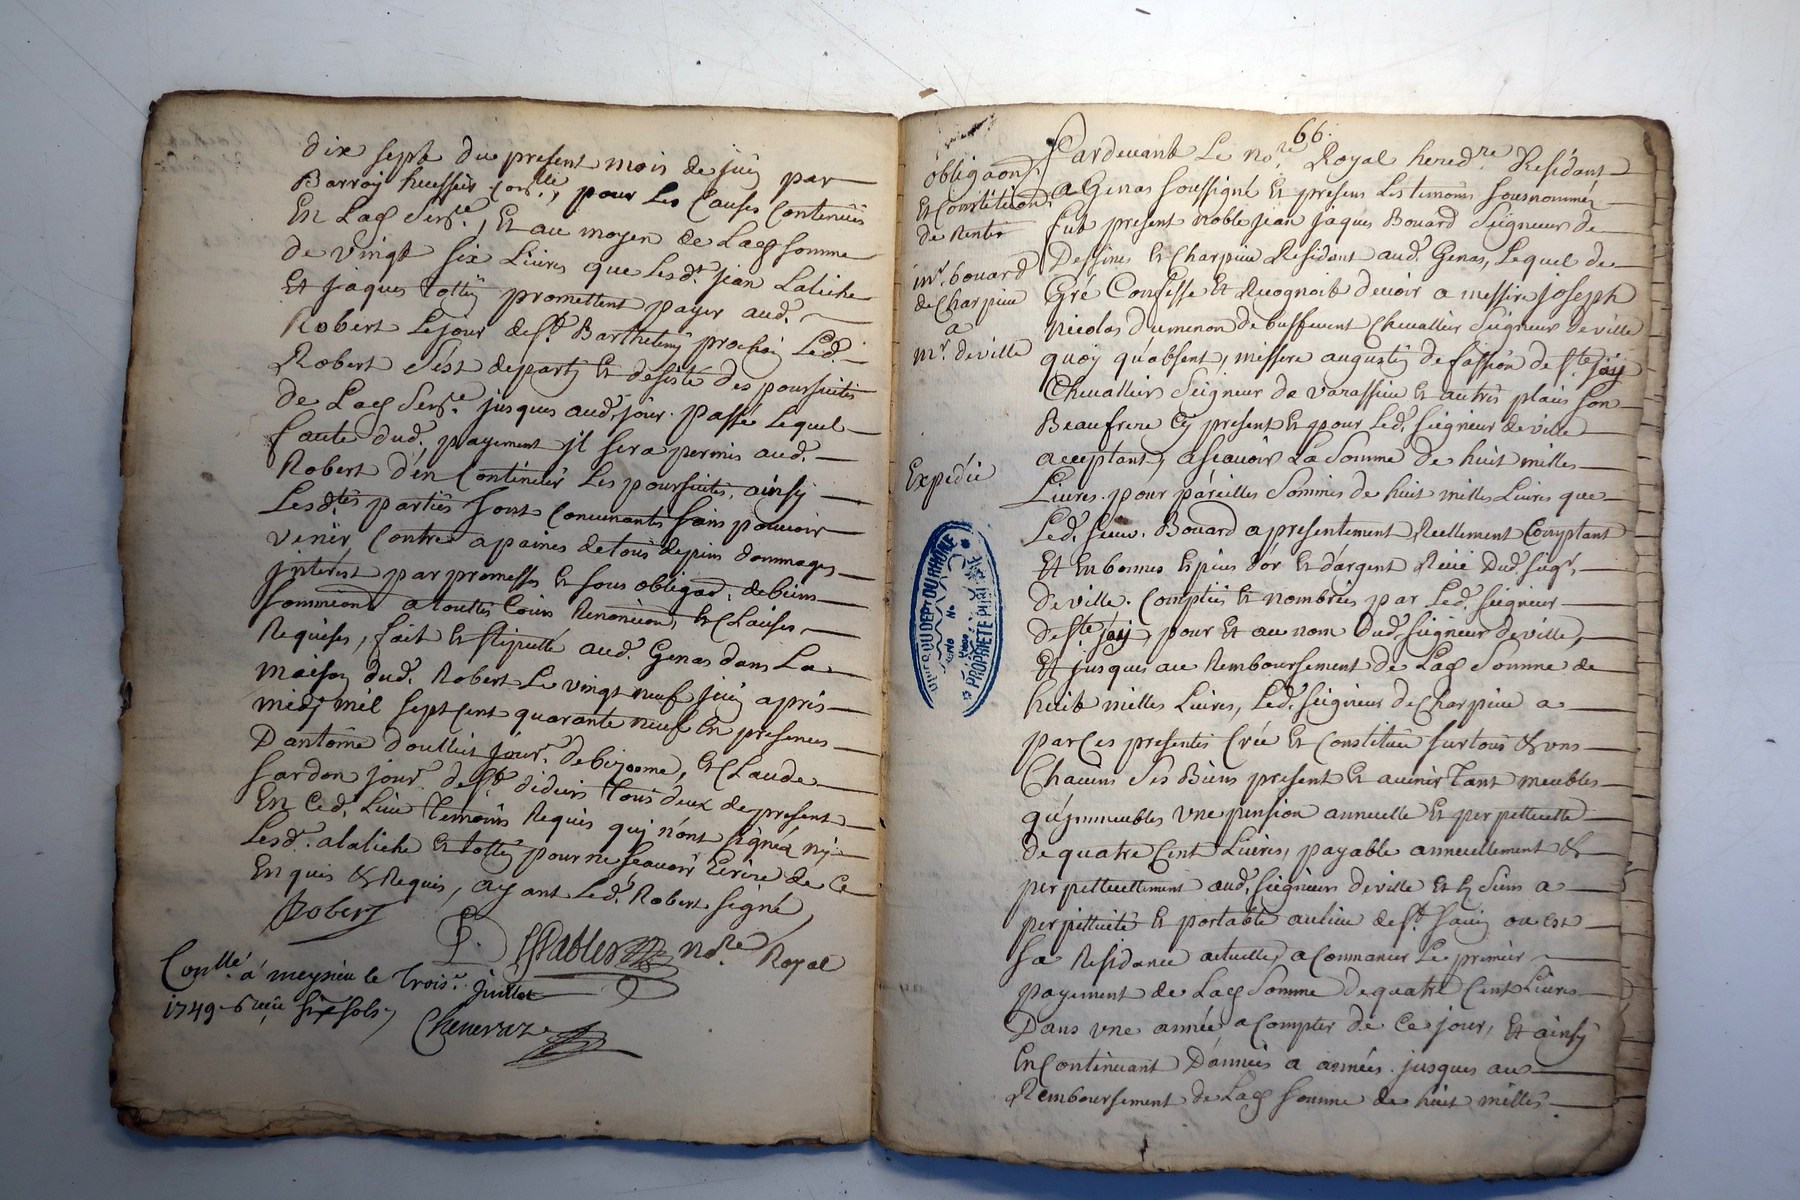 dix sept du present mois de juin par
Barroy huissier pour les Causes Contenües
En Lad Sence, Et au moyen de Lad somme
de vingt six Livres que Lesdt. jean Laliche
Et jaques tottÿ promettent payer aud.
Robert Lejour de St Barthelemy prochain Led.
Robert s'est departy Et desisté des poursuites
de Lad Sence. jusques aud. jour. passé Lequel
faute dud. payement jl sera permis aud.
Robert d'en Continüer Les poursuites, ainsy
Lesdtes parties sont Convenantes sans pouvoir
venir Contre apaines de tous depens dommages
jnterest par promesses Et sous obligaon. de biens
soumissions a toutes Cours Renonciions, Et Clauses
Requises, fait Et stipullé aud. Genas dans La
maison dud. Robert Le vingt neuf juin aprés
midy mil sept Cent quarante neuf En presences
D'antoine doullict jour. de , Et Claude
Sardon jour. de St didier tous deux de present
En Ced. Lieu temoins Requis quj n'ont signéz nÿ
Lesd. alaliche Et tottÿ pour ne sçauoir Ecrire de Ce
Enquis & Requis, ayant Led. Robert signé
Robert
nore. Royal
Conllé a meysieu le trois. juillet
1749. reçu six sols.
66.
obligaon
Et Constitution
de Rente
mr. bouard
de Charpieu
a
mr. deville
Expédié
Pardevant Le nore. Royal heredre Résidant
a Genas soussigné Et presens Les temoins sousnomméz
fut present noble jean jaques Bouard Seigneur de
Dessines Et Charpieu Residant aud. Genas, Lequel de
Gré Confesse Et Recognoit devoir a messire joseph
nicolas dumenon de buffevent Chevallier Seigneur deville
quoÿ qu'absent, missere augustin de de Ste jaÿ
Chevallier Seigneur de varassieu Et autres places son
Beaufrere Cy present Et pour Led. seigneur deville
acceptant, asçavoir La Somme de huit milles
Livres. pour pareilles Sommes de huit milles Livres que
Led. sieur. Bouard a presentement Reellement Comptant
Et En bonnes Especes d'or Et d'argent Reçu Dud. seigr.
deville. Comptées Et nombrées par Led. seigneur
de Ste jaÿ, pour Et au nom Dud. seigneur deville,
Et jusques au Remboursement de Lad Somme de
huit milles Livres, Led. seigneur de Charpieu a
par Ces presentes Créé Et Constitué sur tous & uns
Chacuns Ses Biens present Et auenir tant meubles
qu'jmmeubles vne pension annuelle Et perpettuelle
de quatre Cent Livres, payable annuellement &
perpettuellement aud. seigneur deville Et Es Siens a
perpettuité Et portable au lieu de St. Savin ou Est
Sa Residance actuelle, a Commancer Le premier
payement de Lad Somme de quatre Cent Livres
Dans vne année a Compter de Ce jour, Et ainsy
En Continuant D'années a années. jusques au
Remboursement de Lad Somme de huit milles
PROPRIÉTÉ PUBLIQUE